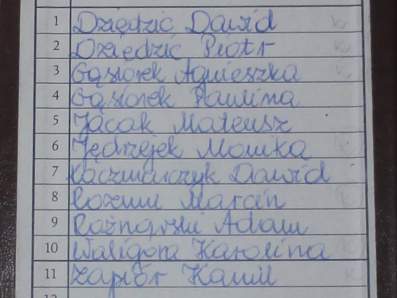 1 Dziędzic Dawid
2 Dziędzic Piotr
3 Gąsiorek Agnieszka
4 Gąsiorek Paulina
5 Jacak Mateusz
6 Jędrzejek Monika
7 Kaczmarczyk Dawid
8 Marcin
9 Adam
10 Waligóra Karolina
11 Zapiór Kamil